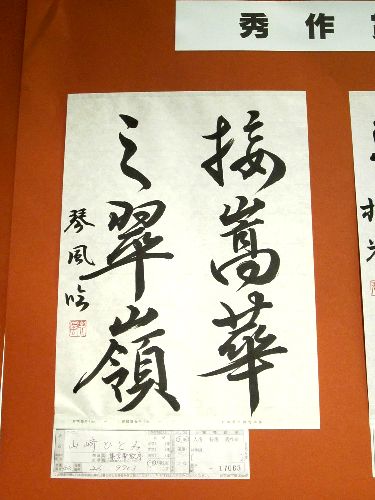 秀作
接嵩華
之翠嶺
琴風吟
山崎ひとみ
17063